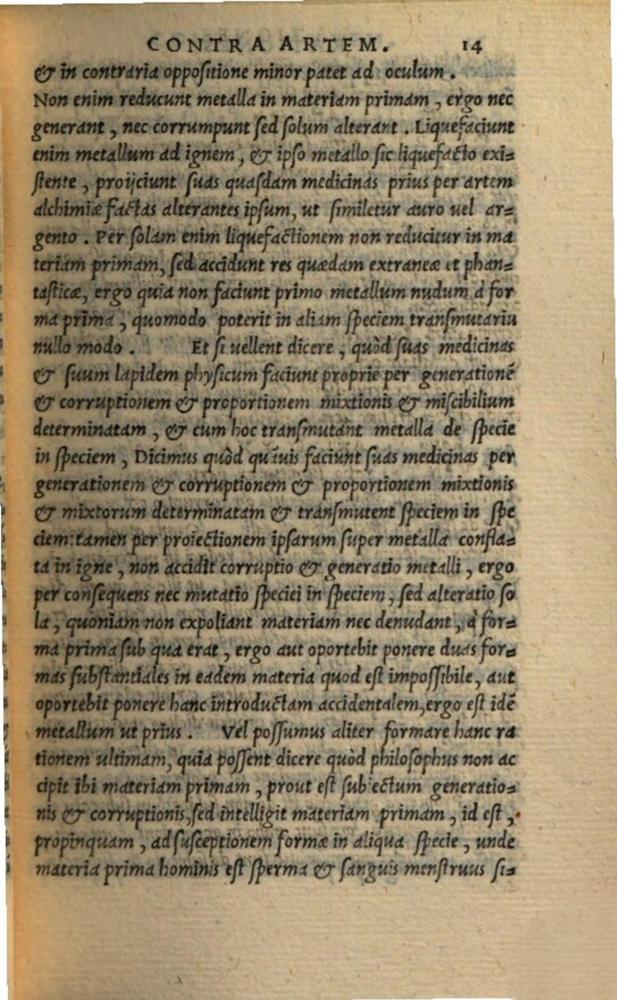 CONTRA ARTEM. 14
& in contraria oppositione minor patet ad oculum.
Non enim reducunt metalla in materiam primam, ergo nec
generant, nec corrumpunt sed solum alterant. Liquefaciunt
enim metallum ad ignem, & ipso metallo sic liquefacto exi=
stente, proijciunt suas quasdam medicinas prius per artem
alchimiæ factas alterantes ipsum, ut similetur auro uel ar=
gento. Per solam enim liquefactionem non reducitur in ma
teriam primam, sed accidunt res quædam extraneæ et phan=
tasticæ, ergo quia non faciunt primo metallum nudum à for
ma prima, quomodo poterit in aliam speciem transmutari
nullo modo. Et si uellent dicere, quòd suas medicinas
& suum lapidem physicum faciunt propriè per generationē
& corruptionem & proportionem mixtionis & miscibilium
determinatam, & cum hoc transmutant metalla de specie
in speciem, Dicimus quòd quāuis faciunt suas medicinas per
generationem & corruptionem & proportionem mixtionis
& mixtorum determinatam & transmutent speciem in spe
ciem: tamen per proiectionem ipsarum super metalla confla=
ta in igne, non accidit corruptio & generatio metalli, ergo
per consequens nec mutatio speciei in speciem, sed alteratio so
la, quoniam non expoliant materiam nec denudant, à for=
ma prima sub qua erat, ergo aut oportebit ponere duas for=
mas substantiales in eadem materia quod est impossibile, aut
oportebit ponere hanc introductam accidentalem, ergo est idē
metallum ut prius. Vel possumus aliter formare hanc ra
tionem ultimam, quia possent dicere quòd philosophus non ac
cipit ibi materiam primam, prout est sub ectum generatio=
nis & corruptionis, sed intelligit materiam primam, id est,
propinquam, ad susceptionem formæ in aliqua specie, unde
materia prima hominis est sperma & sanguis menstruus si=